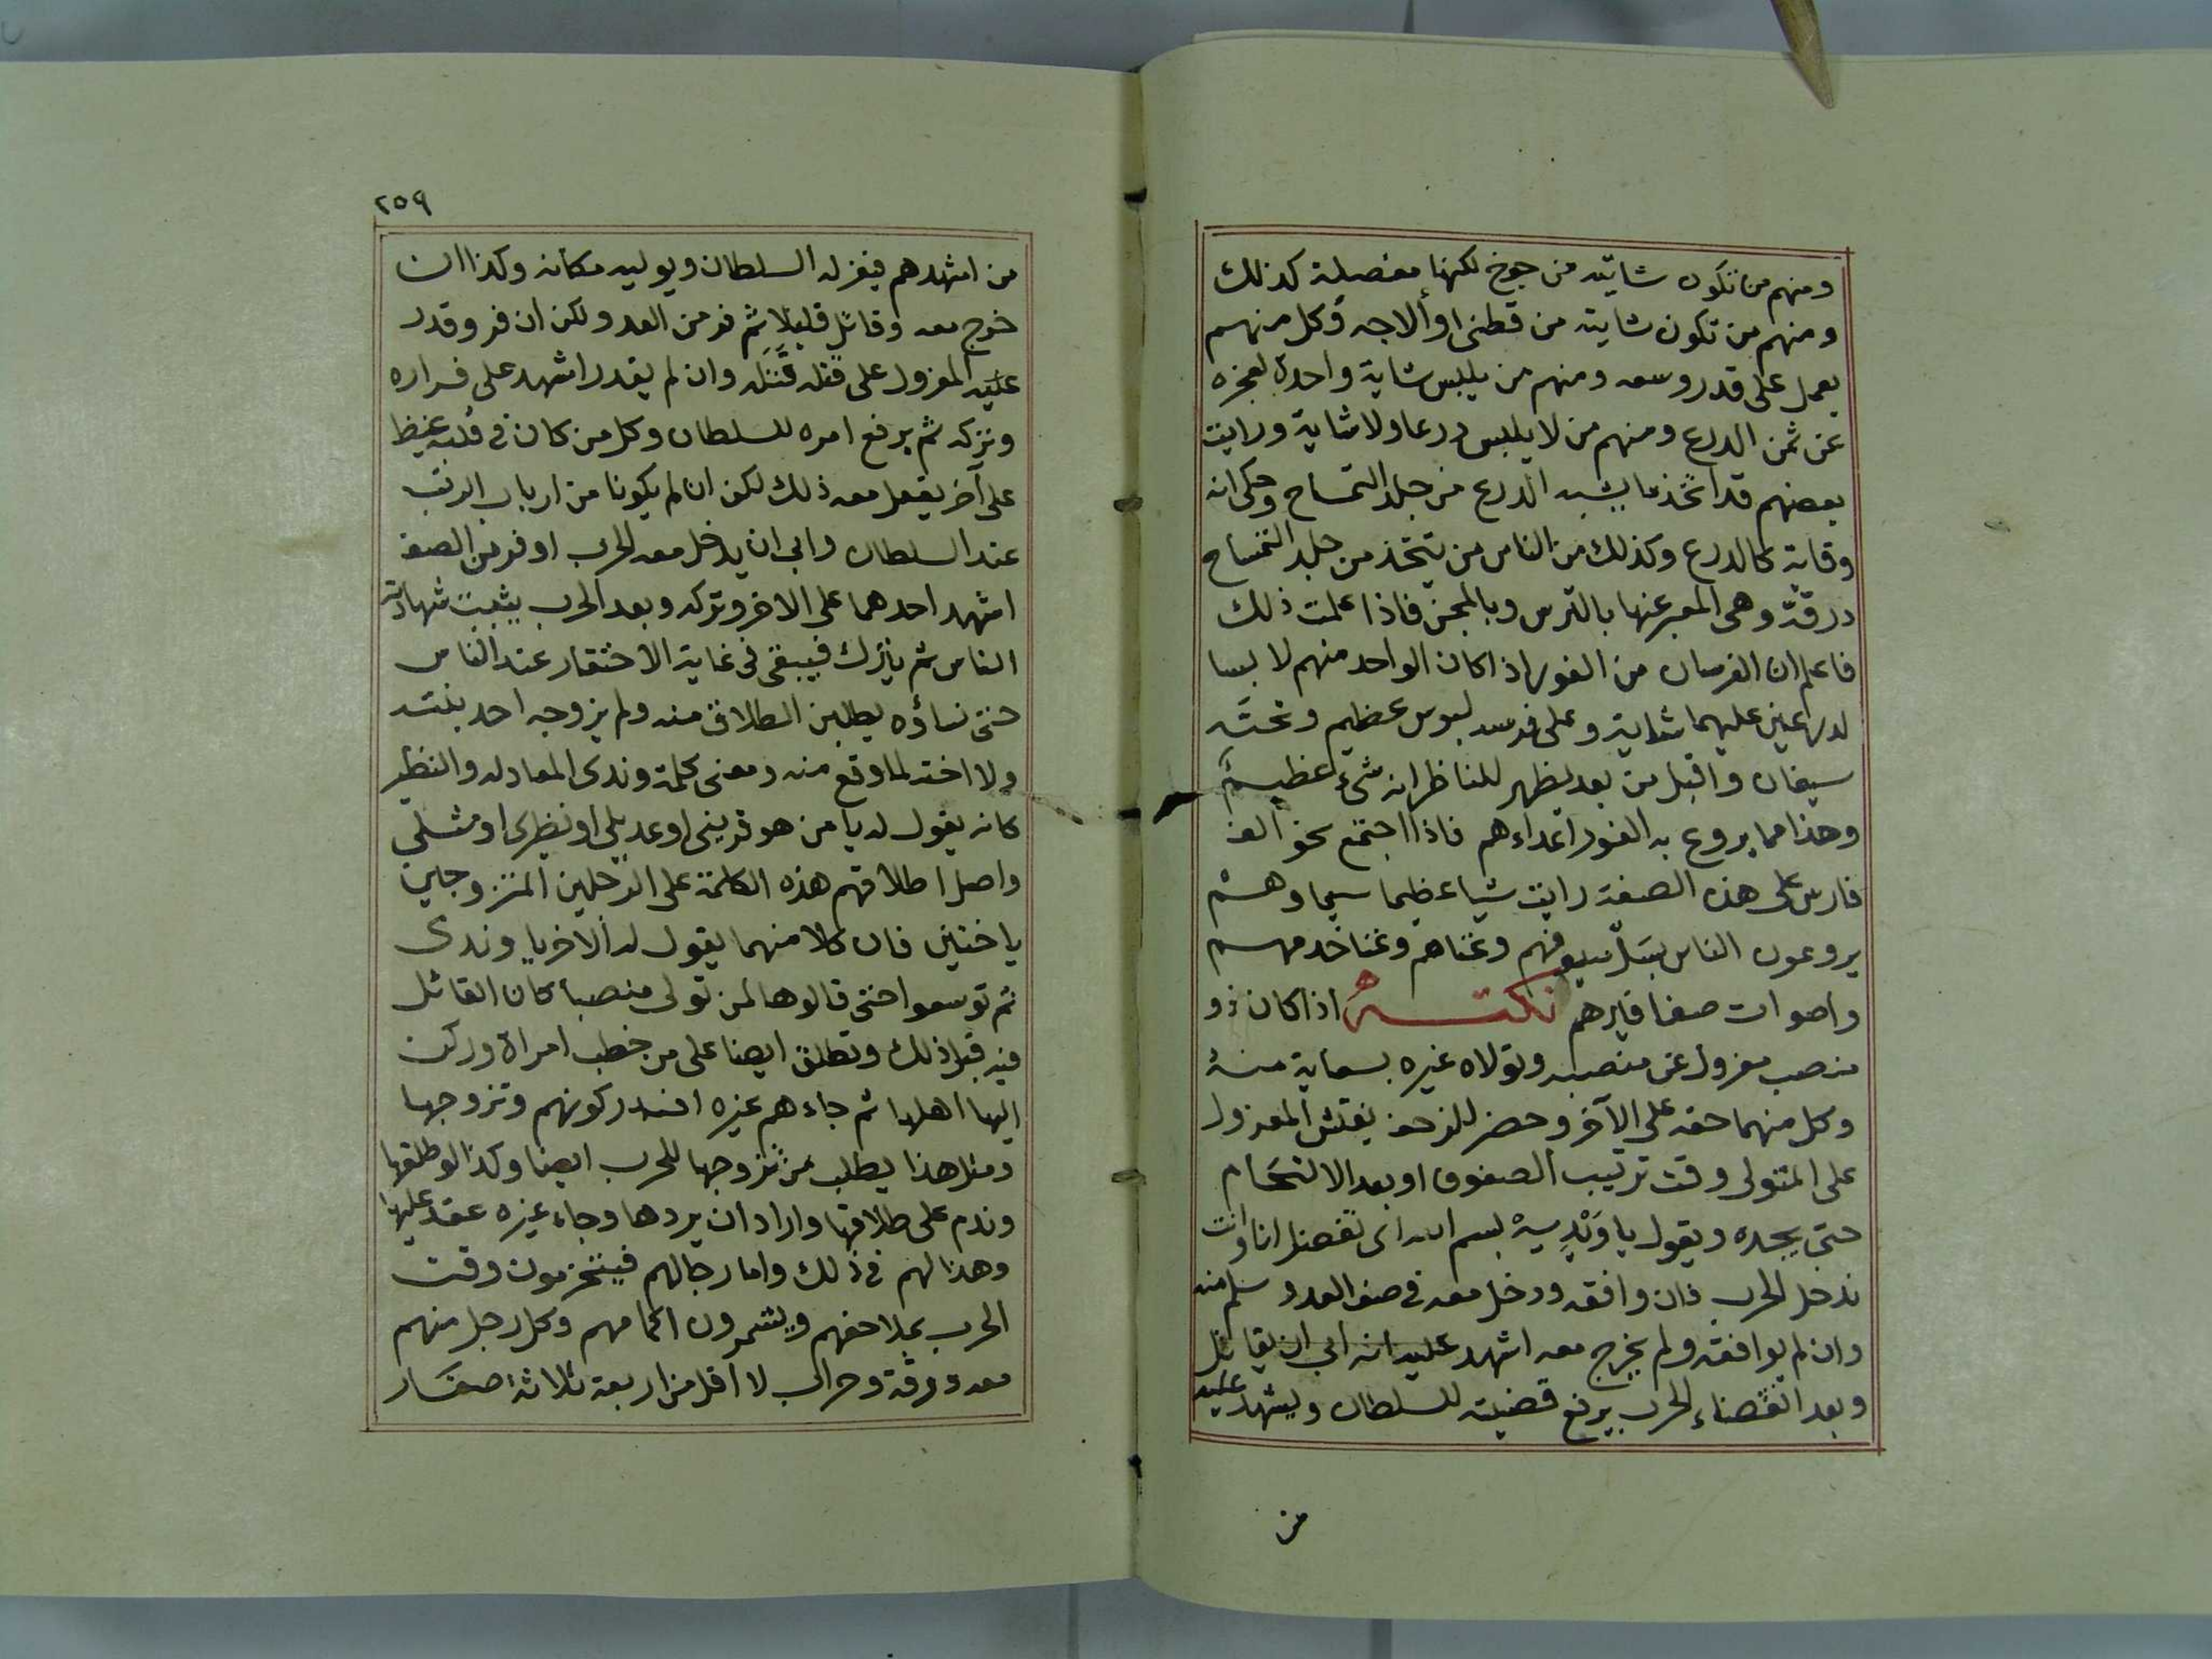 ومنهم من تكون شايته من جوخ لكنها مفصلة كذلك
ومنهم من تكون شايته من قطنى او ألاجه وكل منهم
يعمل على قدر وسعه ومنهم من يلبس شاية واحدة لعجزه
عن ثمن الدرع ومنهم من لا يلبس درعا ولا شاية ورايت
بعضهم قد اتخذ ما يشبه الدرع من جلد التمساح وحكى انه
وقاية كالدرع وكذلك من الناس من يتخذ من جلد التمساح
درقة وهى المعبر عنها بالترس وبالمجن فاذا علمت ذلك
فاعلم ان الفرسان من الفور اذا كان الواحد منهم لابسا
لدرعين عليهما شاية وعلى فرسه لبوس عظيم وتحته
سيفان واقبل من بعد يظهر للناظر انه شىء عظيم
وهذا مما يروع به الفور اعداءهم فاذا اجتمع نحو الف
فارس على هذه الصفة رايت شيا عظيما سيما وهم
يروعون الناس بسل سيوفهم وغناهم وغنا خدمهم
واصوات صفافيرهم نكتة اذا كان ذو
منصب معزول عن منصبه وتولاه غيره بسعاية منه
وكل منهما حقه على الآخر وحضر للزحف يفتش المعزول
على المتولى وقت ترتيب الصفوف او بعد الالتحام
حتى يجده ويقول يا وَنْدِيهْ بسم الله اى تفضل انا وانت
ندخل الحرب فان وافقه ودخل معه فى صف العدو سلم منه
وان لم يوافقه ولم يخرج معه اشهد عليه انه ابى ان يقاتل
وبعد انقضاء الحرب يرفع قضيته للسلطان ويشهد عليه
من
٢٥٩
من اشهدهم فيعزله السلطان ويوليه مكانه وكذا ان
خرج معه وقاتل قليلا ثم فر من العدو ولكن ان فر وقدر
عليه المعزول على قتله قتله وان لم يقدر اشهد على فراره
وتركه ثم يرفع امره للسلطان وكل من كان فى قلبه غيظ
على آخر يفعل معه ذلك لكن ان لم يكونا من ارباب الرتب
عند السلطان وابى ان يدخل معه الحرب او فر من الصف
اشهد احدهما على الاخر وتركه وبعد الحرب يثبت شهادته
الناس ثم يترك فيبقى فى غاية الاحتقار عند الناس
حتى نساؤه يطلبن الطلاق منه ولم يزوجه احد بنته
ولا اخته لما وقع منه ومعنى كلمة وندى المعادله والنظير
كانه يقول له يا من هو قرينى او عديلى او نظيرى او مثلى
واصل اطلاقهم هذه الكلمة على الرجلين المتزوجين
باختين فان كلا منهما يقول له الاخر يا وندى
ثم توسعوا حتى قالوها لمن تولى منصبا كان القائل
فيه قبل ذلك وتطلق ايضا على من خطب امراة وركن
اليها اهلها ثم جاءهم غيره افسد ركونهم وتزوجها
ومثل هذا يطلب من تزوجها للحرب ايضا وكذا لو طلقها
وندم على طلاقها واراد ان يردها وجاء غيره عقد عليها
وهذا لهم فى ذلك واما رجالهم فيتحزمون وقت
الحرب بملاحفهم ويشمرون اكمامهم وكل رجل منهم
معه درقة وحراب لا اقل من اربعة ثلاثة صغار